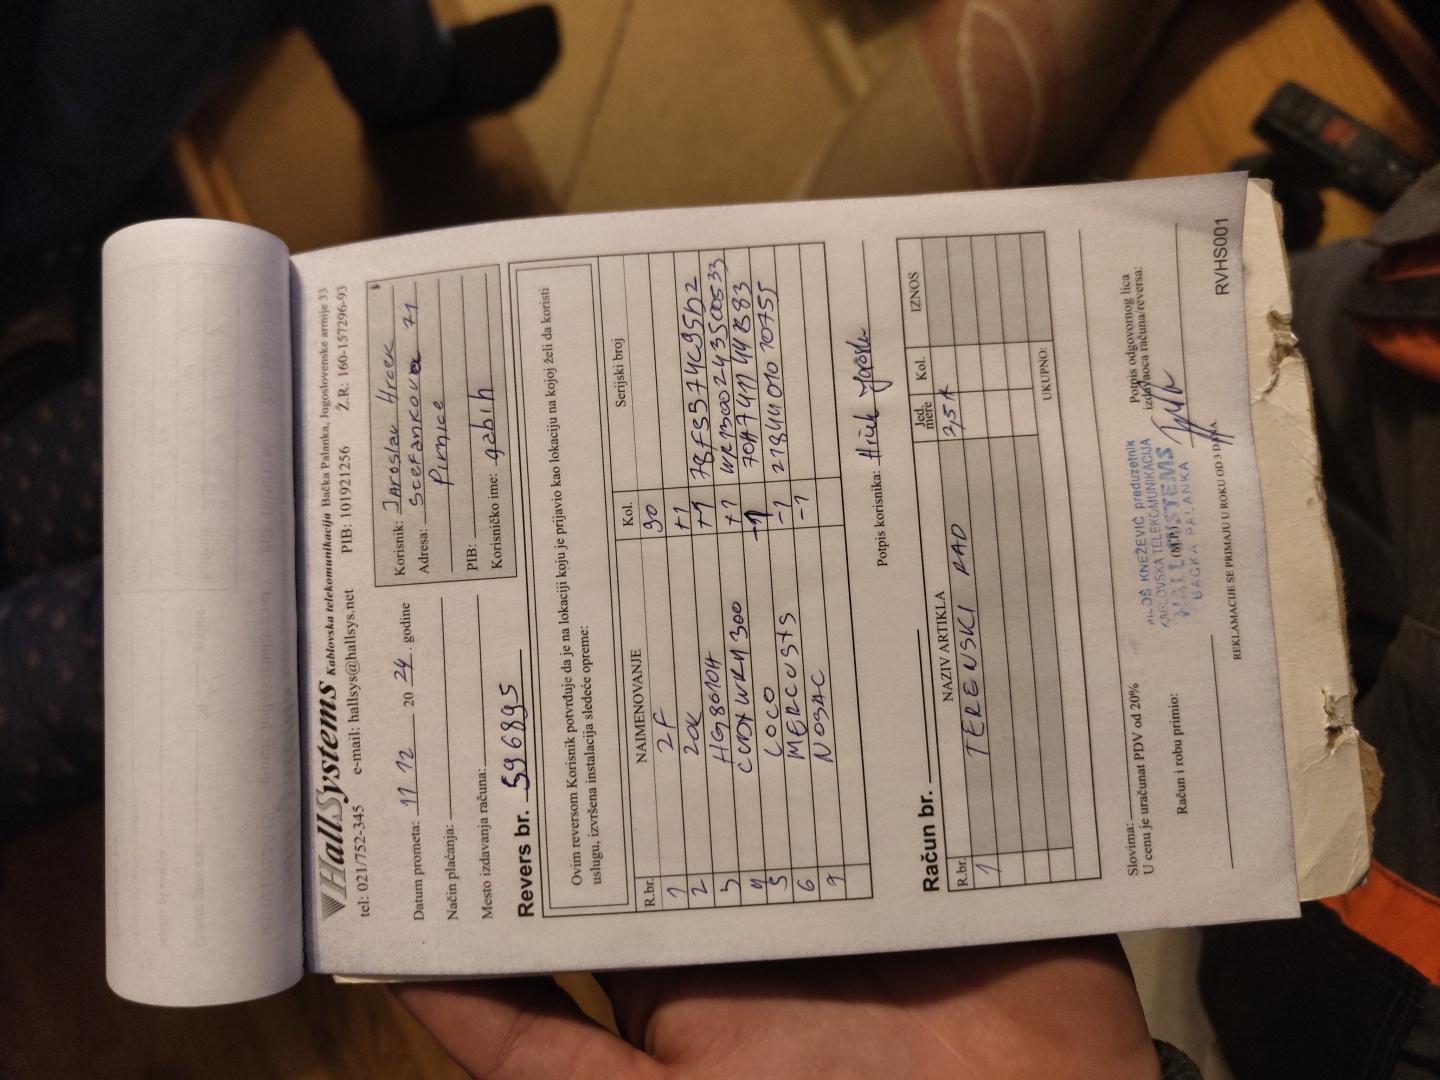 HallSystems Kablovska telekomunikacija Bačka Palanka, Jugoslovenske armije 33
tel: 021/752-345 e-mail: hallsys@hallsys.net PIB: 101921256 Ž.R: 160-157296-93
Datum prometa: 11 12 20 24. godine
Način plaćanja:
Mesto izdavanja računa:
Korisnik: Jaroslav Hrcek
Adresa: Stefanikova 71
Pivnice
PIB:
Korisničko ime: gabih
Revers br. 596895
Ovim reversom Korisnik potvrđuje da je na lokaciji koju je prijavio kao lokaciju na kojoj želi da koristi
uslugu, izvršena instalacija sledeće opreme:
R.br. NAIMENOVANJE Kol. Serijski broj
1 2F 90
2 20K +1
3 HG8010H +1
4 +1
5 LOCO -1
6 MERCUSYS -1
7 NOSAC -1
Potpis korisnika: Hrček
Račun br.
R.br. NAZIV ARTIKLA Jed. mere Kol. IZNOS
1 TERENSKI RAD
UKUPNO:
Slovima:
U cenu je uračunat PDV od 20%
Račun i robu primio:
(M.P.)
MILOŠ KNEŽEVIĆ preduzetnik
KABLOVSKA TELEKOMUNIKACIJA
HALL SYSTEMS
BAČKA PALANKA
Potpis odgovornog lica
izdavaoca računa/reversa:
REKLAMACIJE SE PRIMAJU U ROKU OD 3 DANA.
RVHS001